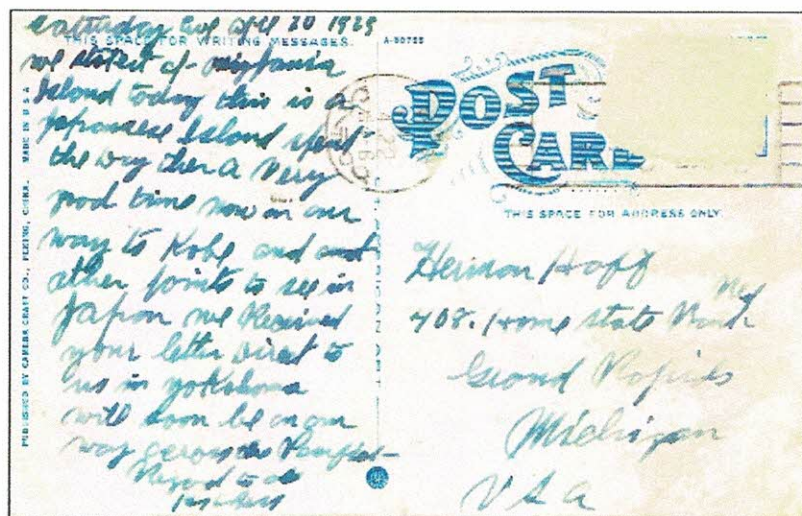 Satturday Eve April 20 1929
THIS SPACE FOR WRITING MESSAGES.
we at
Island today this is a
Japanese Island spend
the Day ther a very
good time now on our
way to Kobe and
other points to see in
Japan we Received
your letter Direct to
us in Yokohama
will soon be on our
way across the
Regard to all
PUBLISHED BY CAMERA CRAFT CO., PEKING, CHINA. MADE IN U S A
A-80755
POST
CARD
THIS SPACE FOR ADDRESS ONLY
Herman Hoff
408. Home state
Grand Rapids
Michigan
USA